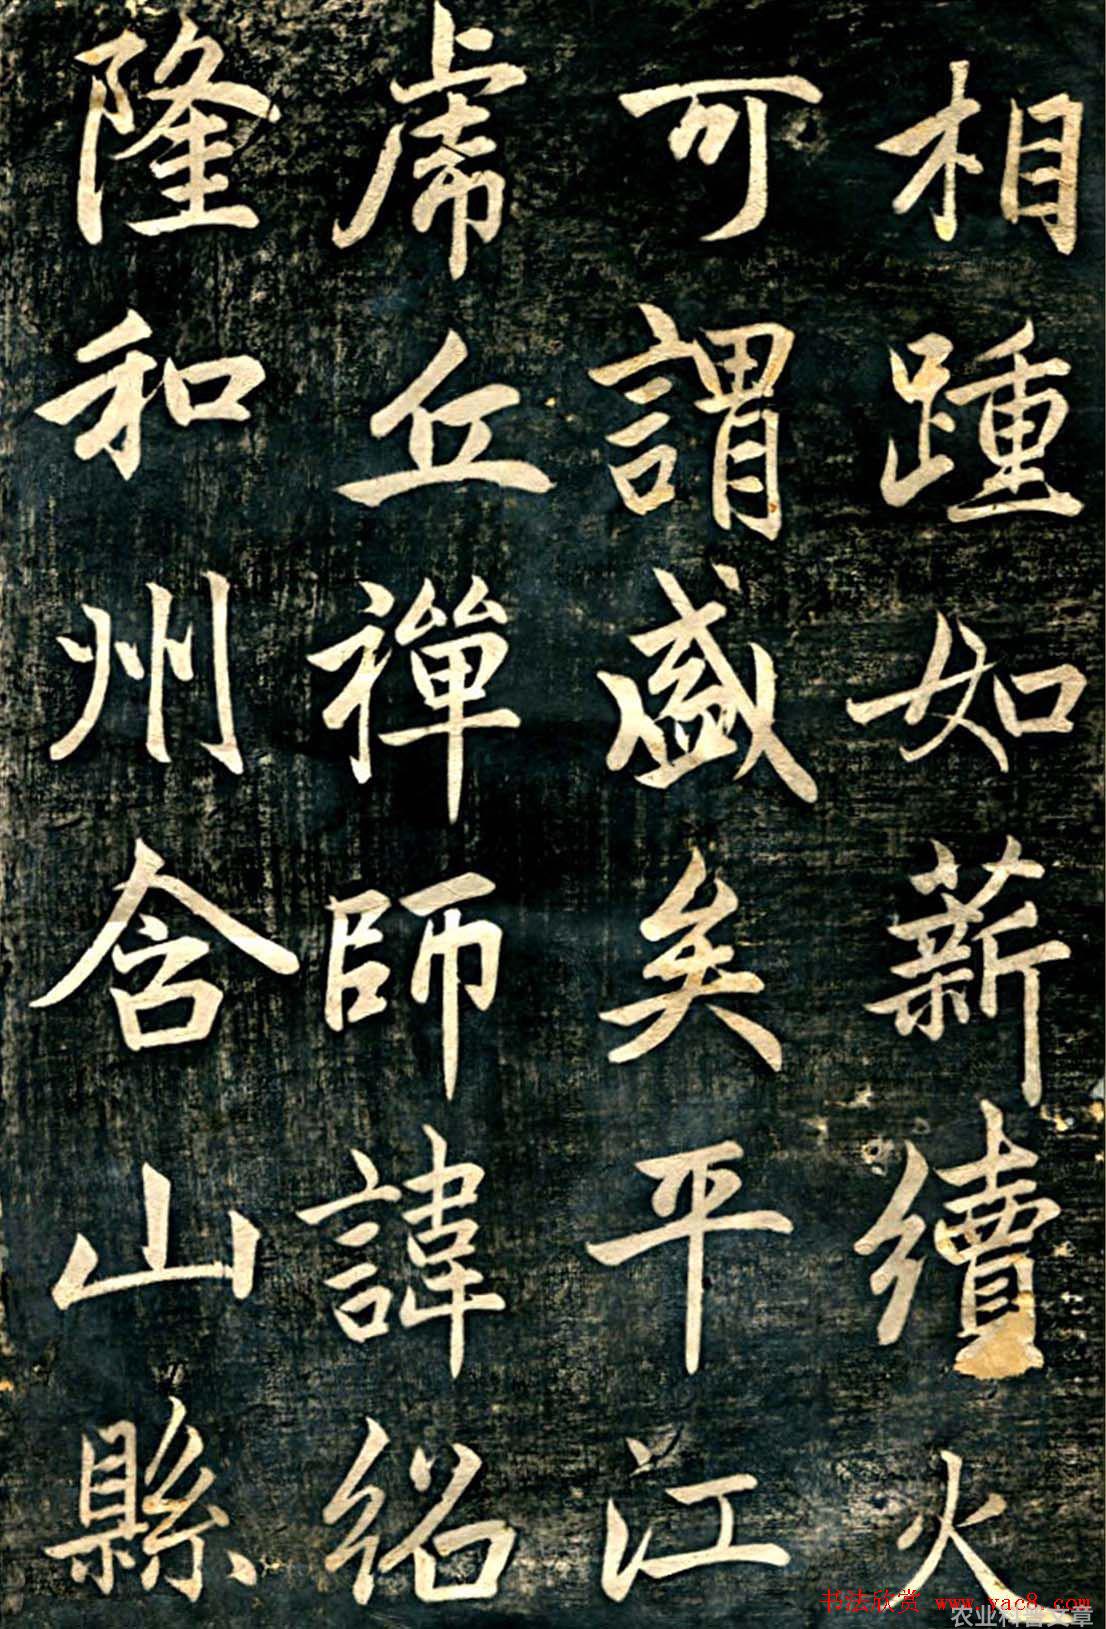 相踵如薪續火
可謂盛矣平江
虎丘禪師諱紹
隆和州含山縣
书法欣赏 www.yac8.com
农业科普文章